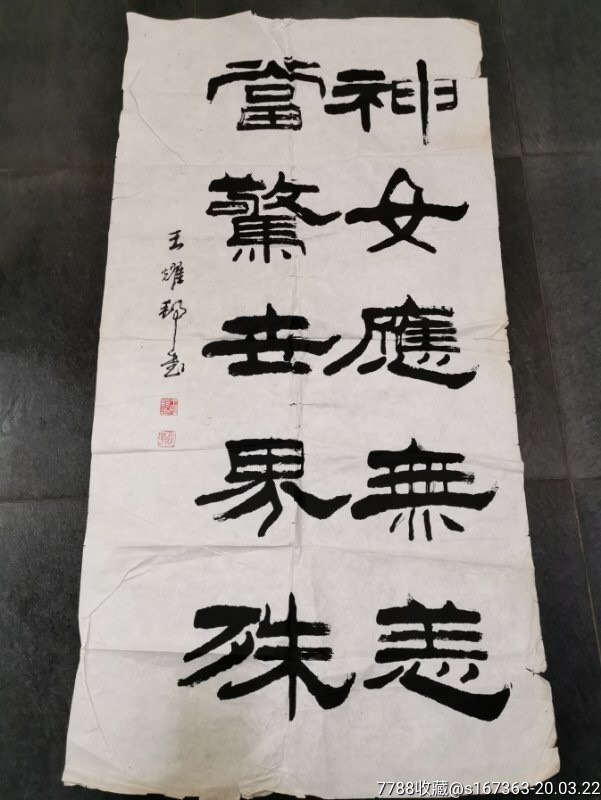 神女應無恙
當驚世界殊
王耀邦書
7788收藏@s167363-20.03.22